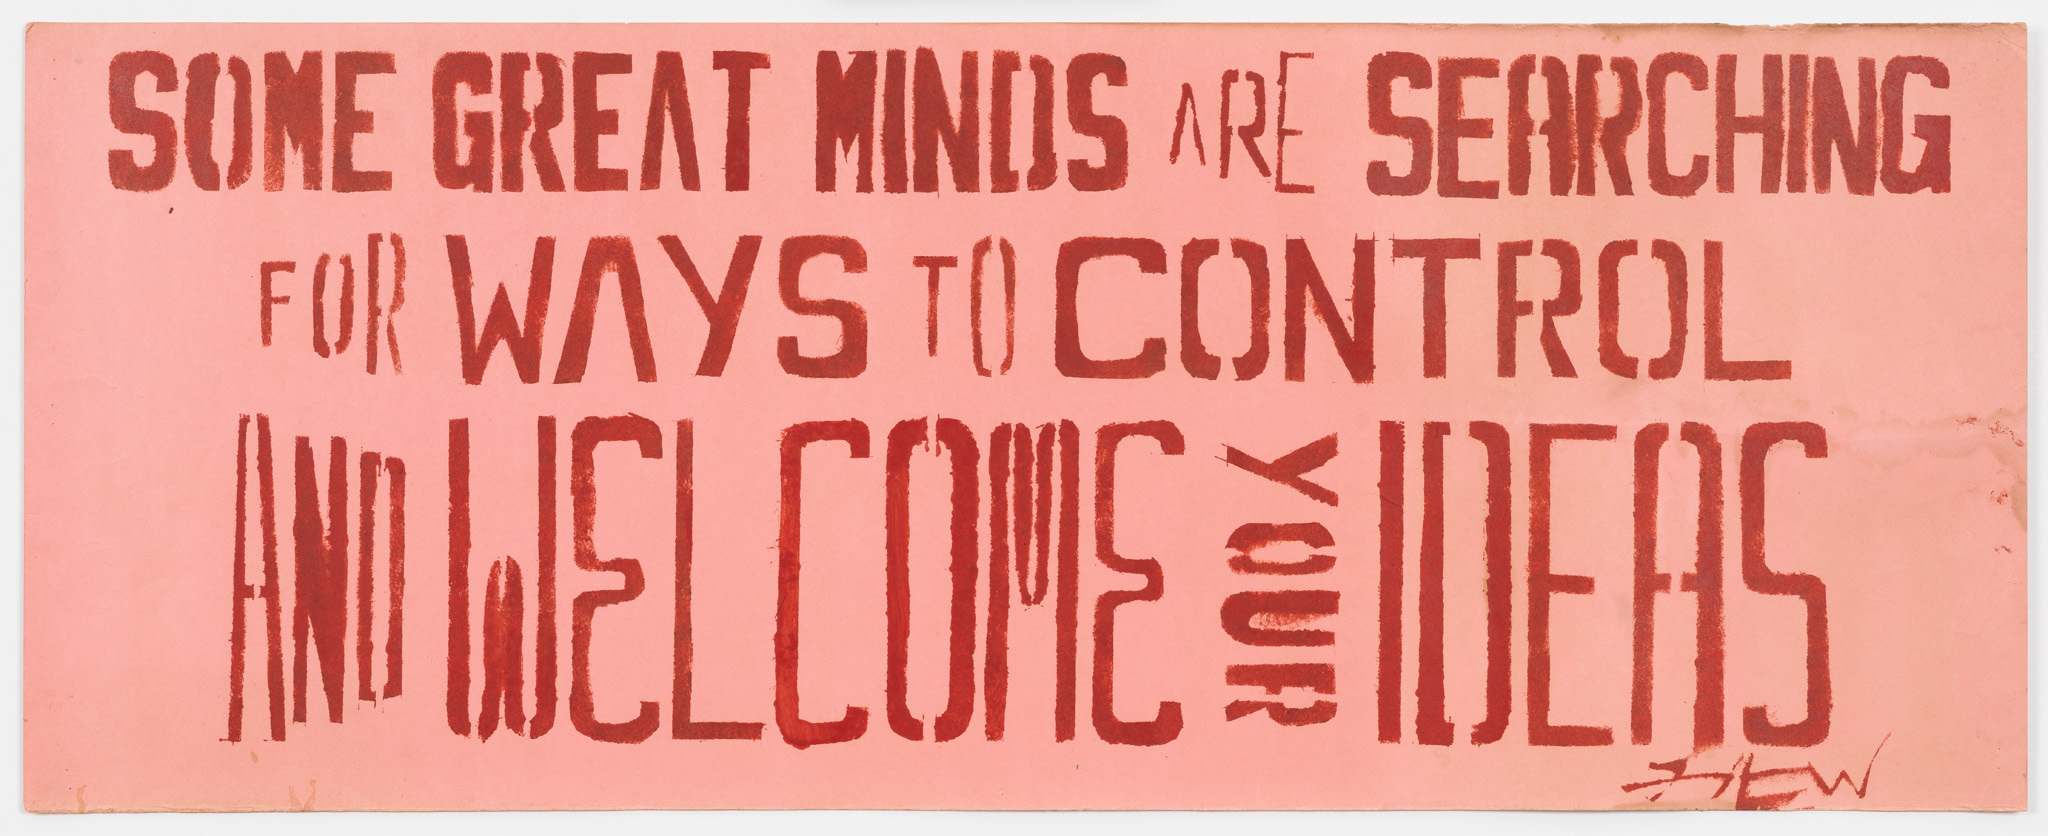 SOME GREAT MINDS ARE SEARCHING
FOR WAYS TO CONTROL
AND WELCOME YOUR IDEAS